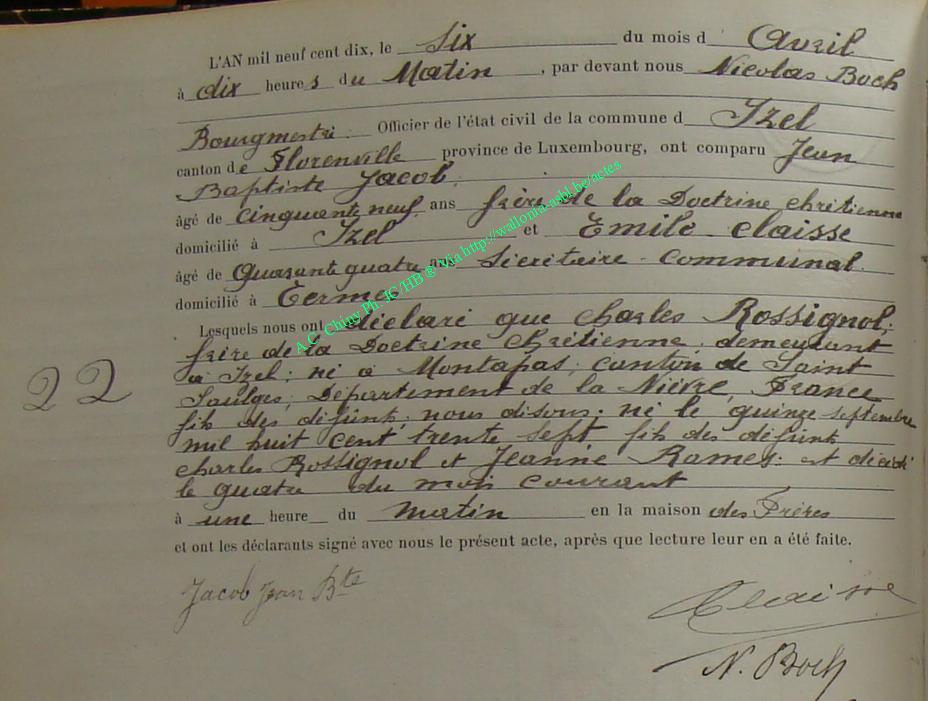 L'AN mil neuf cent dix, le Six du mois d Avril
à dix heures du Matin, par devant nous Nicolas Boch
Bourgmestre Officier de l'état civil de la commune d Izel
canton de Florenville province de Luxembourg, ont comparu Jean
Baptiste Jacob,
âgé de cinquante neuf ans frère de la Doctrine chrétienne
domicilié à Izel et Emile Claisse
âgé de quarante quatre ans Sécrétaire communal
domicilié à Termes
Lesquels nous ont déclaré que Charles Rossignol,
frère de la Doctrine Chrétienne demeurant
à Izel; né à Montapas; canton de Saint
Saulges, Département de la Nièvre, France
fils des défunts; nous disons: né le quinze septembre
mil huit cent trente sept fils des défunts
Charles Rossignol et Jeanne Rames: est décédé
le quatre du mois courant
à une heure du matin en la maison des Frères
et ont les déclarants signé avec nous le présent acte, après que lecture leur en a été faite.
22
Jacob Jean Bte
Claisse
N. Boch
A.C. Chiny Ph. JC HB @ Via http://wallonia-asbl.be/actes